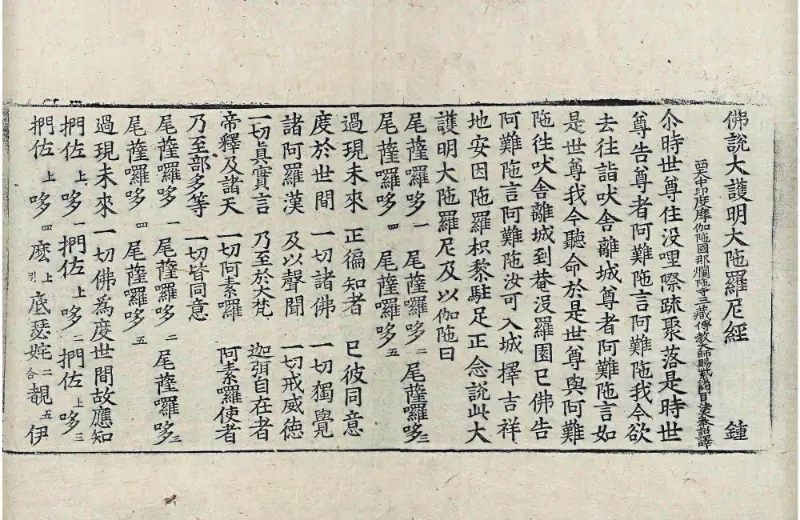 佛說大護明大陀羅尼經 鍾
西天中印度摩伽陁國那爛陁寺三藏傳教大師賜紫沙門臣法天奉詔譯
尒時世尊住没哩際䟽聚落是時世
尊告尊者阿難陁言阿難陁我今欲
去往詣吠舍離城尊者阿難陁言如
是世尊我今聽命於是世尊與阿難
陁徃吠舍離城到菴没羅園已佛告
阿難陁言阿難陁汝可入城擇吉祥
地安因陁羅枳黎駐足正念說此大
護明大陁羅尼及以伽陁曰
尾薩囉哆 一 尾薩囉哆 二 尾薩囉哆 三
尾薩囉哆 四 尾薩囉哆 五
過現未來 正徧知者 已彼同意
度於世間 一切諸佛 一切獨覺
諸阿羅漢 及以聲聞 一切戒威徳
一切真實言 乃至於大梵 迦弭自在者
帝釋及諸天 一切阿素囉 阿素囉使者
乃至部多等 一切皆同意
尾薩囉哆 一 尾薩囉哆 二 尾薩囉哆 三
尾薩囉哆 四 尾薩囉哆 五
過現未來一切佛為度世間故應知
捫佐 上 哆 一 捫佐 上 哆 二 捫佐 上 哆 三
捫佐 上 哆 四 麽 上 底瑟姹 二合 覩 五 伊